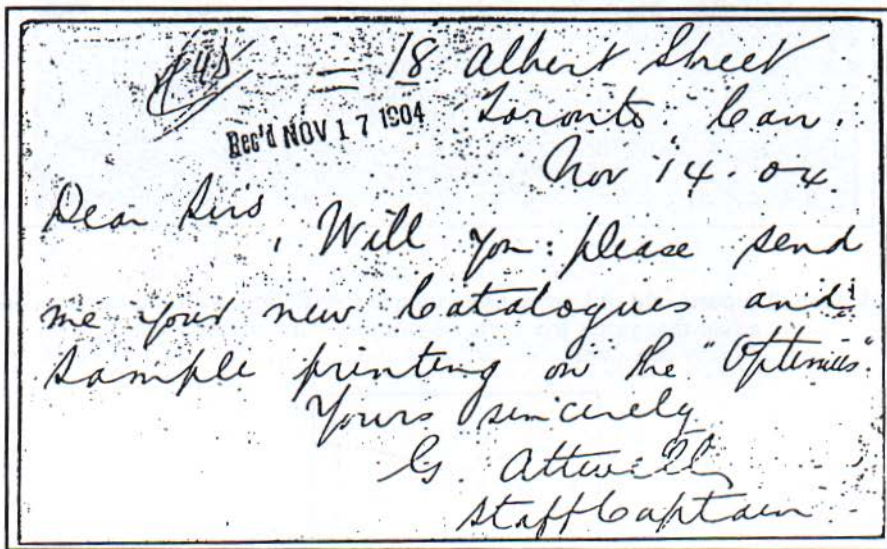 18 Albert Street
Rec'd NOV 17 1904
Toronto. Can.
Nov 14. 04.
Dear Sirs
Will you please send
me your new Catalogues and
sample printing on the "Optimus"
Yours sincerely
G. Attwell
Staff Captain